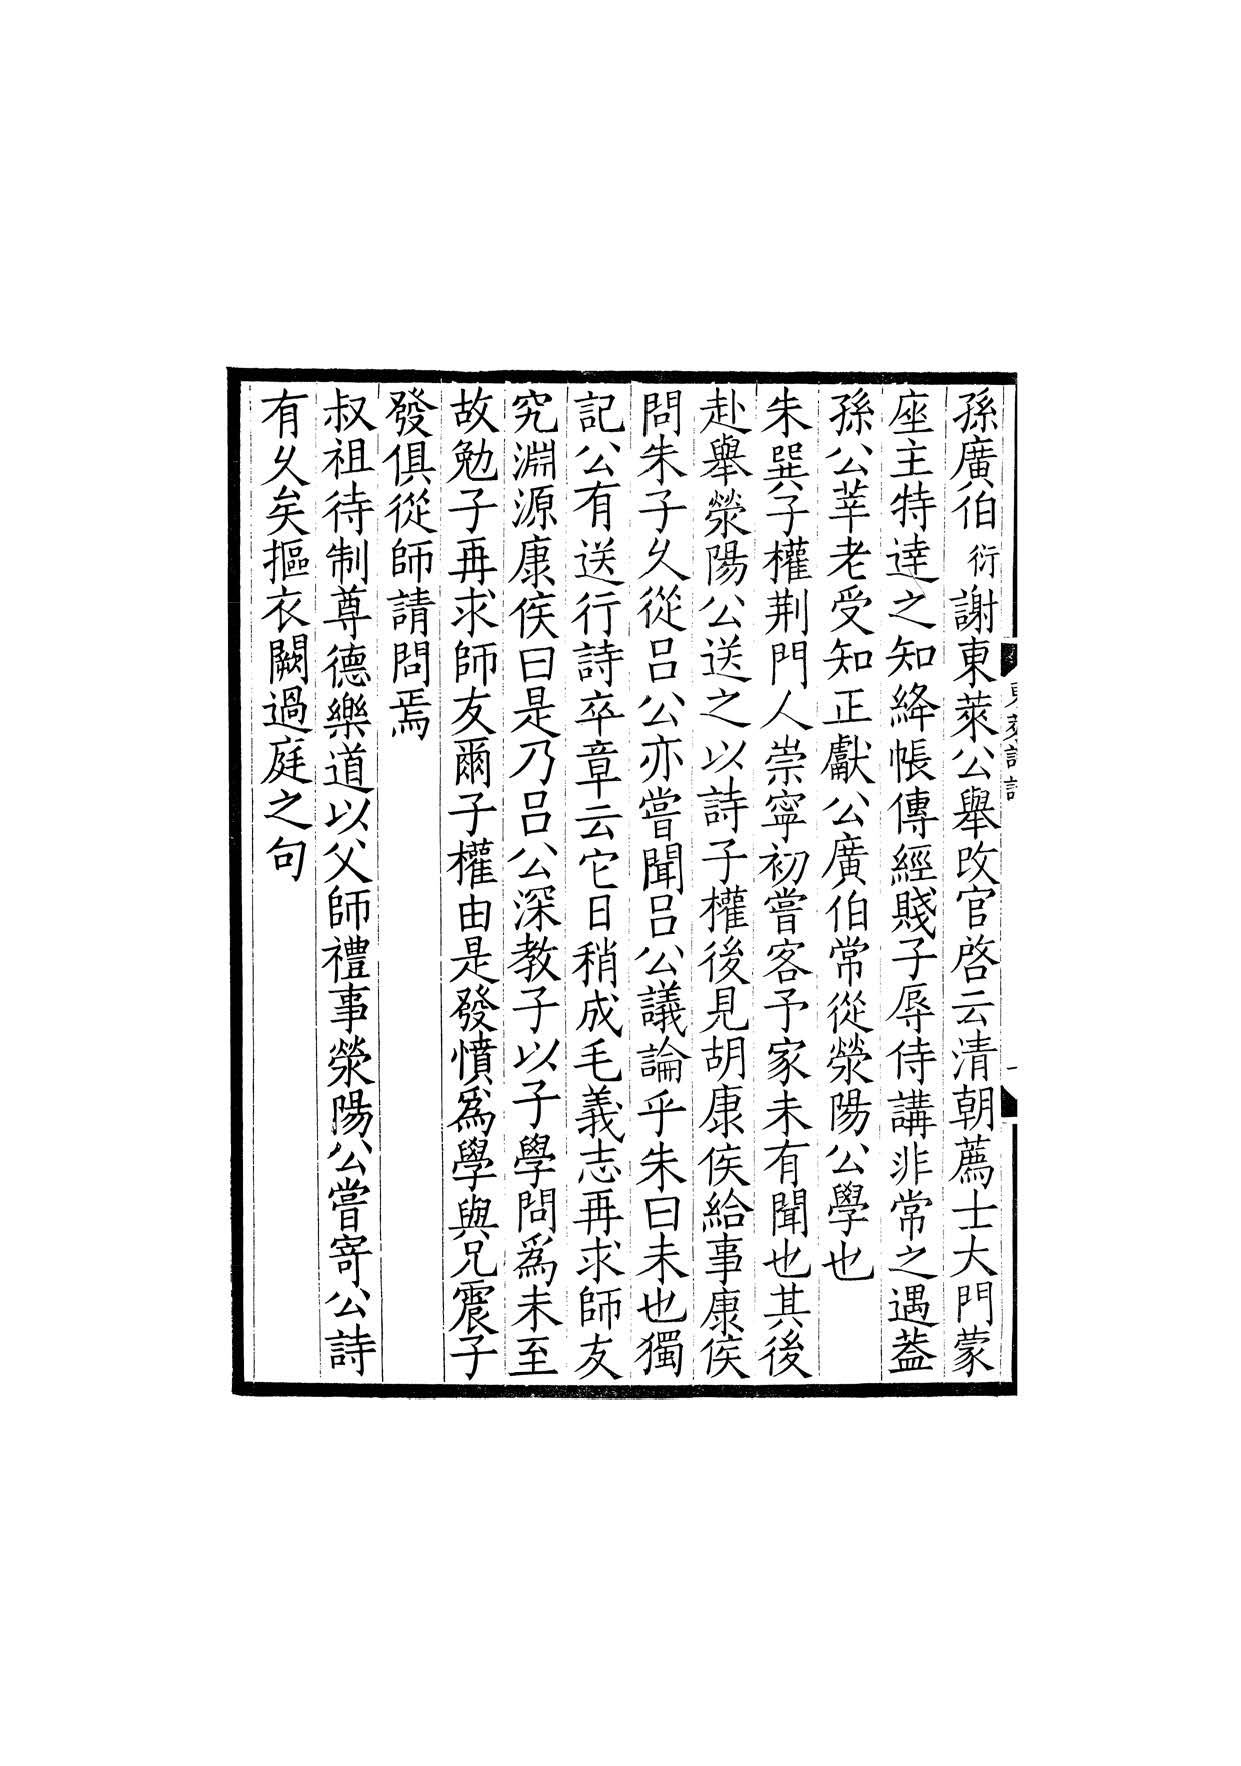 孫廣伯衍謝東萊公舉改官啓云清朝薦士大門蒙
座主特達之知絳帳傳經賤子辱侍講非常之遇葢
孫公莘老受知正獻公廣伯常從滎陽公學也
朱巽子權荆門人崇寧初嘗客予家未有聞也其後
赴舉滎陽公送之以詩子權後見胡康侯給事康侯
問朱子乆從吕公亦嘗聞吕公議論乎朱曰未也獨
記公有送行詩卒章云它日稍成毛義志再求師友
究淵源康侯曰是乃吕公深教子以子學問爲未至
故勉子再求師友爾子權由是發憤爲學與兄震子
發俱從師請問焉
叔祖待制尊德樂道以父師禮事滎陽公嘗寄公詩
有乆矣摳衣闕過庭之句